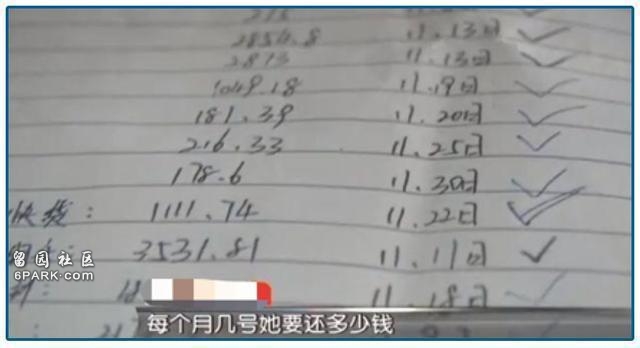 2854.8 11.13日
2873 11.13日
1049.18 11.19日
181.39 11.20日
216.33 11.25日
178.6 11.30日
快钱: 1111.74 11.22日
3531.81 11.11日
18 11.18日
留园社区
6PARK.COM
每个月几号她要还多少钱